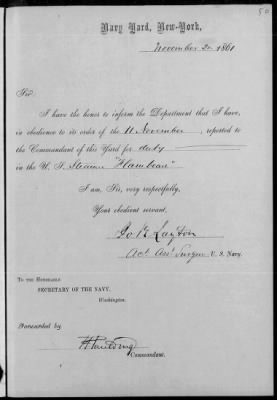 50
Navy Yard, New-York,
November 20 1861
Sir
I have the honor to inform the Department that I have,
in obedience to its order of the 11 November, reported
to the Commandant of this Yard for duty
in the U. S. Steamer "Flambeau"
I am, Sir, very respectfully,
Your obedient servant,
Layton
Act Asst Surgeon U. S. Navy.
TO THE HONORABLE
SECRETARY OF THE NAVY,
Washington.
Forwarded by
H Paulding
Commandant.